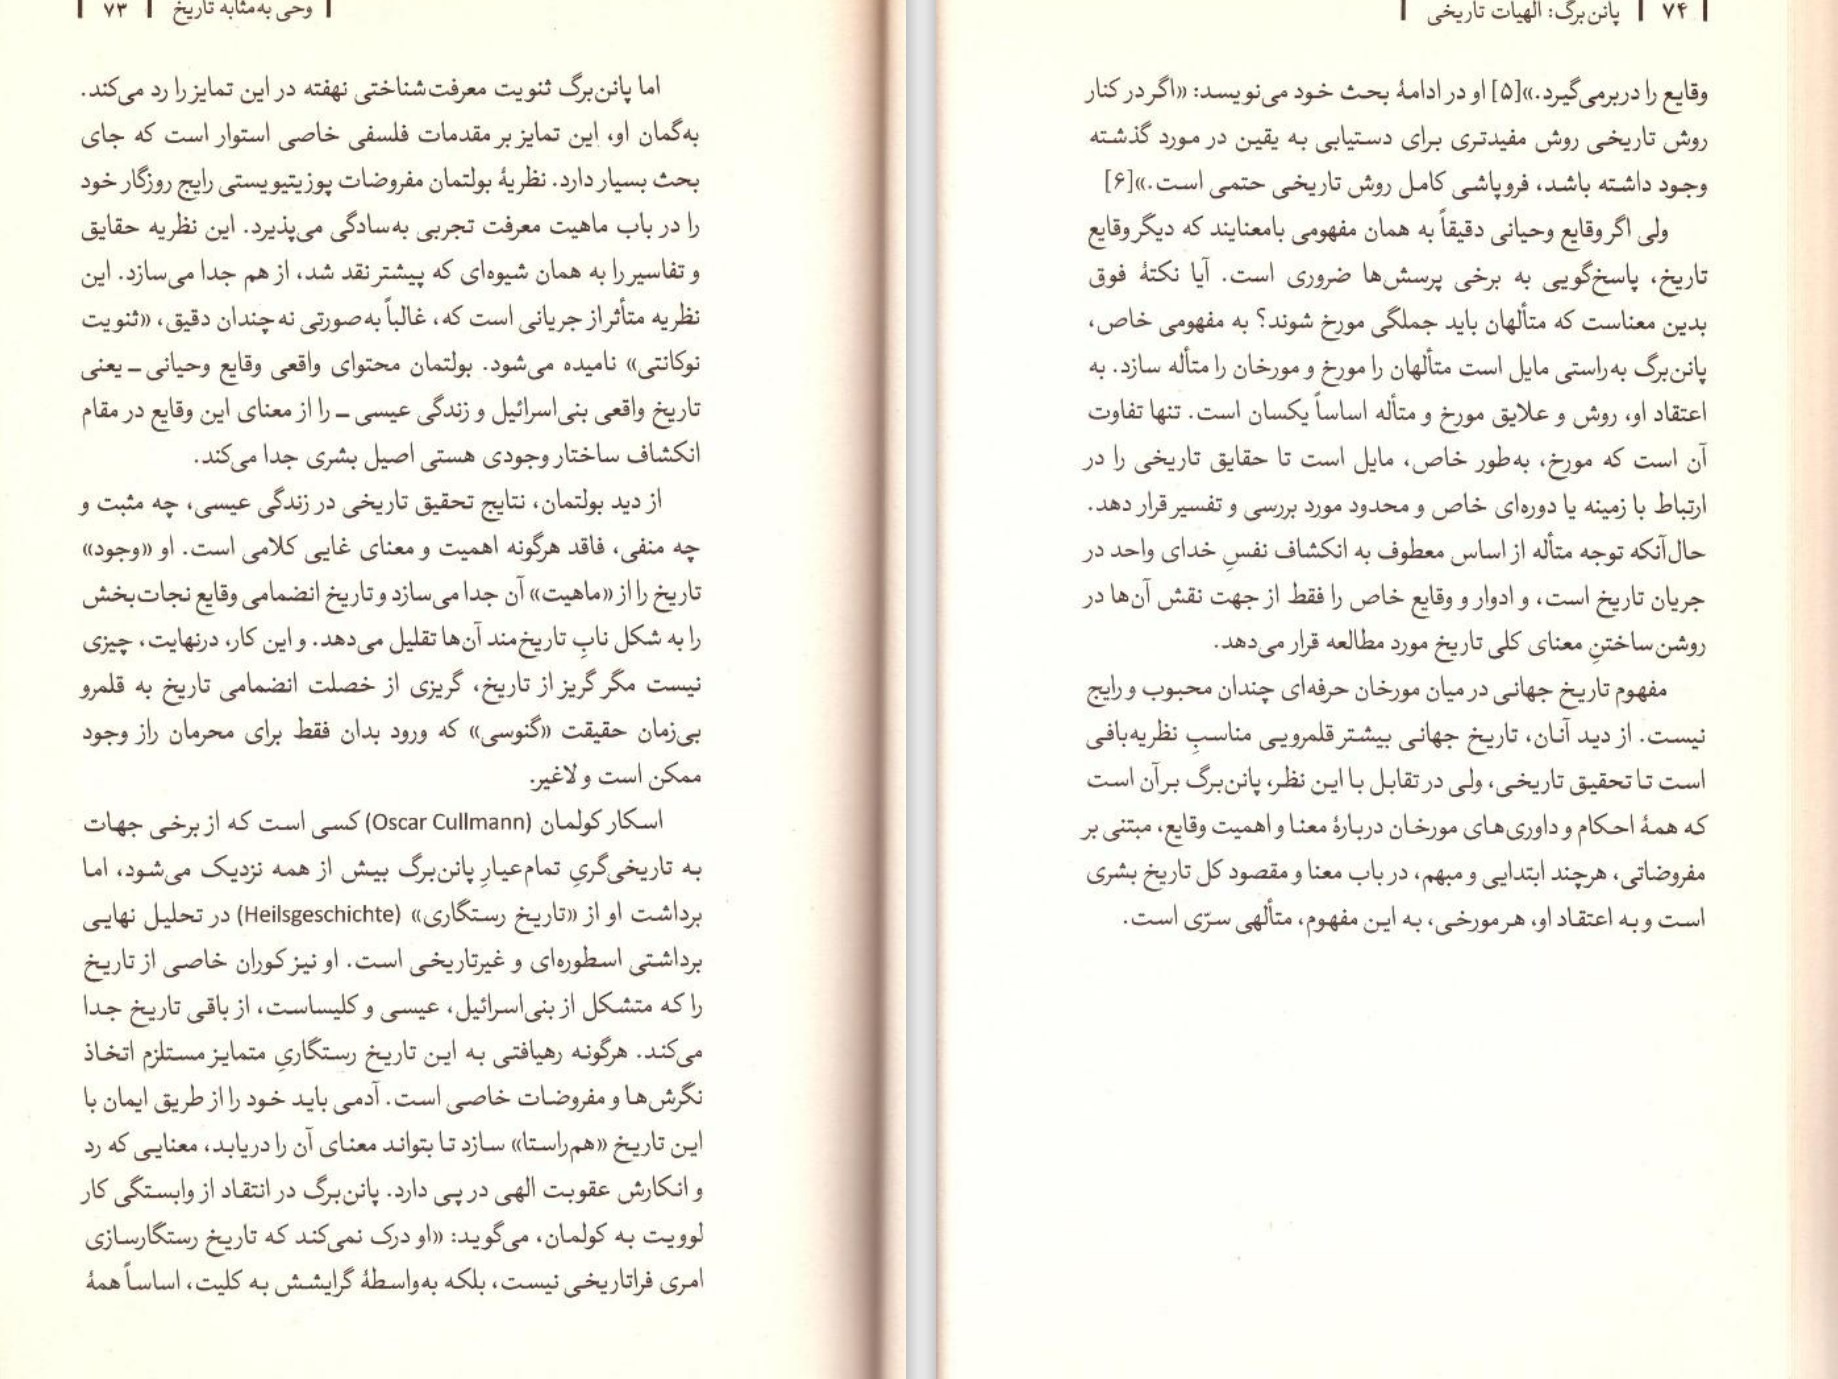 وحی به‌مثابه تاریخ | ۷۳
اما پانن‌برگ ثنویت معرفت‌شناختی نهفته در این تمایز را رد می‌کند.
به‌گمان او، این تمایز بر مقدمات فلسفی خاصی استوار است که جای
بحث بسیار دارد. نظریهٔ بولتمان مفروضات پوزیتیویستی رایج روزگار خود
را در باب ماهیت معرفت تجربی به‌سادگی می‌پذیرد. این نظریه حقایق
و تفاسیر را به همان شیوه‌ای که پیشتر نقد شد، از هم جدا می‌سازد. این
نظریه متأثر از جریانی است که، غالباً به‌صورتی نه چندان دقیق، «ثنویت
نوکانتی» نامیده می‌شود. بولتمان محتوای واقعی وقایع وحیانی ـ یعنی
تاریخ واقعی بنی‌اسرائیل و زندگی عیسی ـ را از معنای این وقایع در مقام
انکشاف ساختار وجودی هستی اصیل بشری جدا می‌کند.
از دید بولتمان، نتایج تحقیق تاریخی در زندگی عیسی، چه مثبت و
چه منفی، فاقد هرگونه اهمیت و معنای غایی کلامی است. او «وجود»
تاریخ را از «ماهیت» آن جدا می‌سازد و تاریخ انضمامی وقایع نجات‌بخش
را به شکل نابِ تاریخ‌مند آن‌ها تقلیل می‌دهد. و این کار، درنهایت، چیزی
نیست مگر گریز از تاریخ، گریزی از خصلت انضمامی تاریخ به قلمرو
بی‌زمان حقیقت «گنوسی» که ورود بدان فقط برای محرمان راز وجود
ممکن است و لاغیر.
اسکار کولمان (Oscar Cullmann) کسی است که از برخی جهات
به تاریخی‌گریِ تمام‌عیارِ پانن‌برگ بیش از همه نزدیک می‌شود، اما
برداشت او از «تاریخ رستگاری» (Heilsgeschichte) در تحلیل نهایی
برداشتی اسطوره‌ای و غیرتاریخی است. او نیز کوران خاصی از تاریخ
را که متشکل از بنی‌اسرائیل، عیسی و کلیساست، از باقی تاریخ جدا
می‌کند. هرگونه رهیافتی به این تاریخ رستگاریِ متمایز مستلزم اتخاذ
نگرش‌ها و مفروضات خاصی است. آدمی باید خود را از طریق ایمان با
این تاریخ «هم‌راستا» سازد تا بتواند معنای آن را دریابد، معنایی که رد
و انکارش عقوبت الهی در پی دارد. پانن‌برگ در انتقاد از وابستگی کار
لوویت به کولمان، می‌گوید: «او درک نمی‌کند که تاریخ رستگارسازی
امری فراتاریخی نیست، بلکه به‌واسطهٔ گرایشش به کلیت، اساساً همهٔ
۷۴ | پانن‌برگ: الهیات تاریخی
وقایع را دربرمی‌گیرد.»[۵] او در ادامهٔ بحث خود می‌نویسد: «اگر در کنار
روش تاریخی روش مفیدتری برای دستیابی به یقین در مورد گذشته
وجود داشته باشد، فروپاشی کامل روش تاریخی حتمی است.»[۶]
ولی اگر وقایع وحیانی دقیقاً به همان مفهومی بامعنایند که دیگر وقایع
تاریخ، پاسخ‌گویی به برخی پرسش‌ها ضروری است. آیا نکتهٔ فوق
بدین معناست که متألهان باید جملگی مورخ شوند؟ به مفهومی خاص،
پانن‌برگ به‌راستی مایل است متألهان را مورخ و مورخان را متأله سازد. به
اعتقاد او، روش و علایق مورخ و متأله اساساً یکسان است. تنها تفاوت
آن است که مورخ، به‌طور خاص، مایل است تا حقایق تاریخی را در
ارتباط با زمینه یا دوره‌ای خاص و محدود مورد بررسی و تفسیر قرار دهد.
حال‌آنکه توجه متأله از اساس معطوف به انکشاف نفسِ خدای واحد در
جریان تاریخ است، و ادوار و وقایع خاص را فقط از جهت نقش آن‌ها در
روشن‌ساختنِ معنای کلی تاریخ مورد مطالعه قرار می‌دهد.
مفهوم تاریخ جهانی در میان مورخان حرفه‌ای چندان محبوب و رایج
نیست. از دید آنان، تاریخ جهانی بیشتر قلمرویی مناسبِ نظریه‌بافی
است تا تحقیق تاریخی، ولی در تقابل با این نظر، پانن‌برگ برآن است
که همهٔ احکام و داوری‌های مورخان دربارهٔ معنا و اهمیت وقایع، مبتنی بر
مفروضاتی، هرچند ابتدایی و مبهم، در باب معنا و مقصود کل تاریخ بشری
است و به اعتقاد او، هر مورخی، به این مفهوم، متألهی سرّی است.